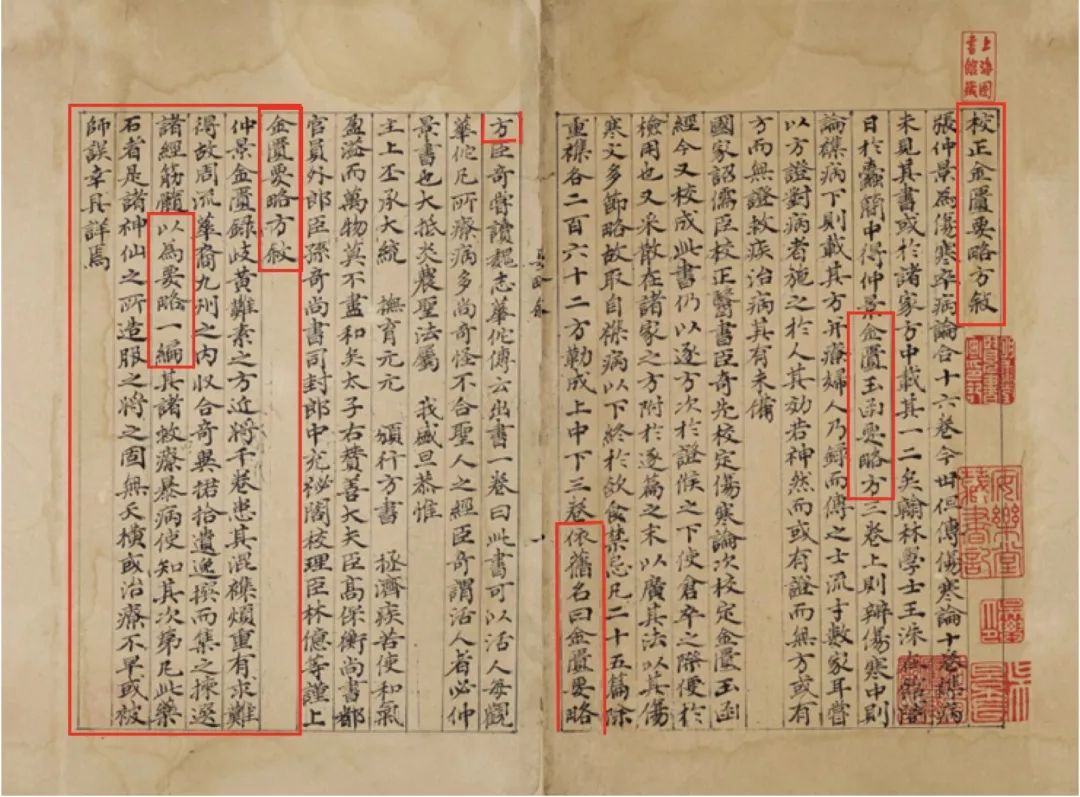 上海圖書館藏
校正金匱要略方敘
張仲景為傷寒卒病論合十六卷今世但傳傷寒論十卷襍病
未見其書或於諸家方中載其一二矣翰林學士王洙在館閣
日於蠹簡中得仲景金匱玉函要略方三卷上則辯傷寒中則
論襍病下則載其方并療婦人乃錄而傳之士流才數家耳嘗
以方證對病者施之於人其効若神然而或有證而無方或有
方而無證救疾治病其有未備
國家詔儒臣校正醫書臣奇先校定傷寒論次校定金匱玉函
經今又校成此書仍以逐方次於證候之下使倉卒之際便於
檢用也又采散在諸家之方附於逐篇之末以廣其法以其傷
寒文多節略故取自襍病以下終於飲食禁忌凡二十五篇除
重襍各二百六十二方勒成上中下三卷依舊名曰金匱要略
安樂堂藏書記
要略敘 一
方臣奇嘗讀魏志華佗傳云出書一卷曰此書可以活人每觀
華佗凡所療病多尚奇怪不合聖人之經臣奇謂活人者必仲
景書也大抵炎農聖法屬 我盛旦恭惟
主上丕承大統 撫育元元 頒行方書 拯濟疾苦使和氣
盈溢而萬物莫不盡和矣太子右贊善大夫臣高保衡尚書都
官員外郎臣孫奇尚書司封郎中充祕閣校理臣林億等謹上
金匱要略方敘
仲景金匱録岐黃難素之方近將千卷患其混襍煩重有求難
得故周流華裔九州之內収合奇異捃拾遺逸揀而集之揀選
諸經筋髓以為要略一編其諸救療暴病使知其次第凡此藥
石者是諸神仙之所造服之將之固無夭橫或治療不早或被
師誤幸具詳焉